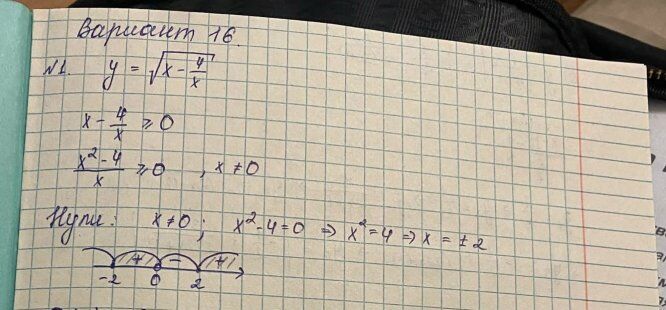 Вариант 16.
№1. y = √(x - 4/x)
x - 4/x ⩾ 0
(x² - 4)/x ⩾ 0 , x ≠ 0
Нули: x ≠ 0 ; x² - 4 = 0 ⇒ x² = 4 ⇒ x = ± 2
+ - +
-2 0 2